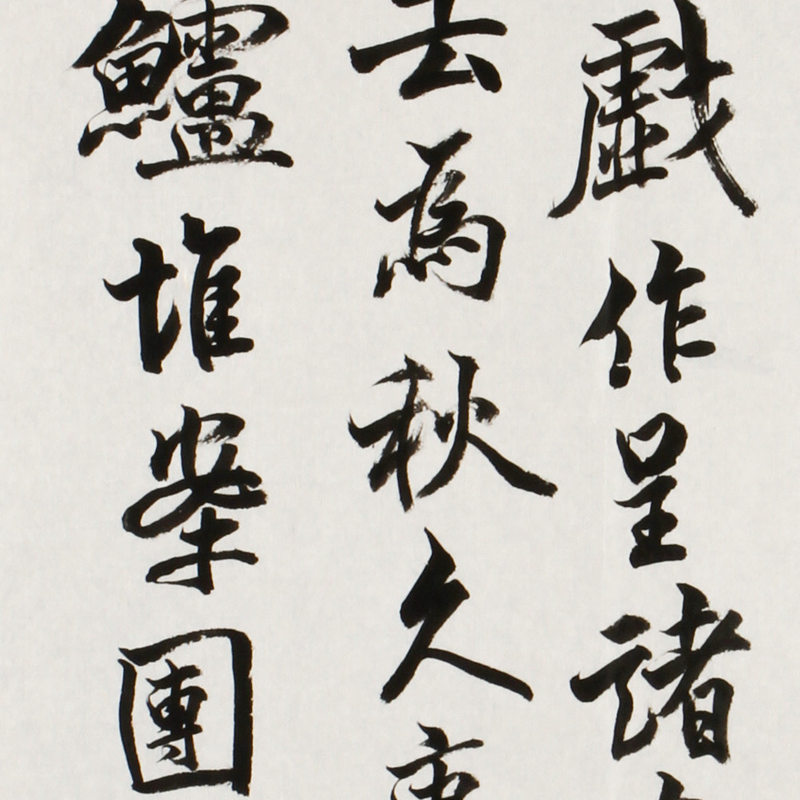 戱作呈諸
去為秋久
鱸堆案團